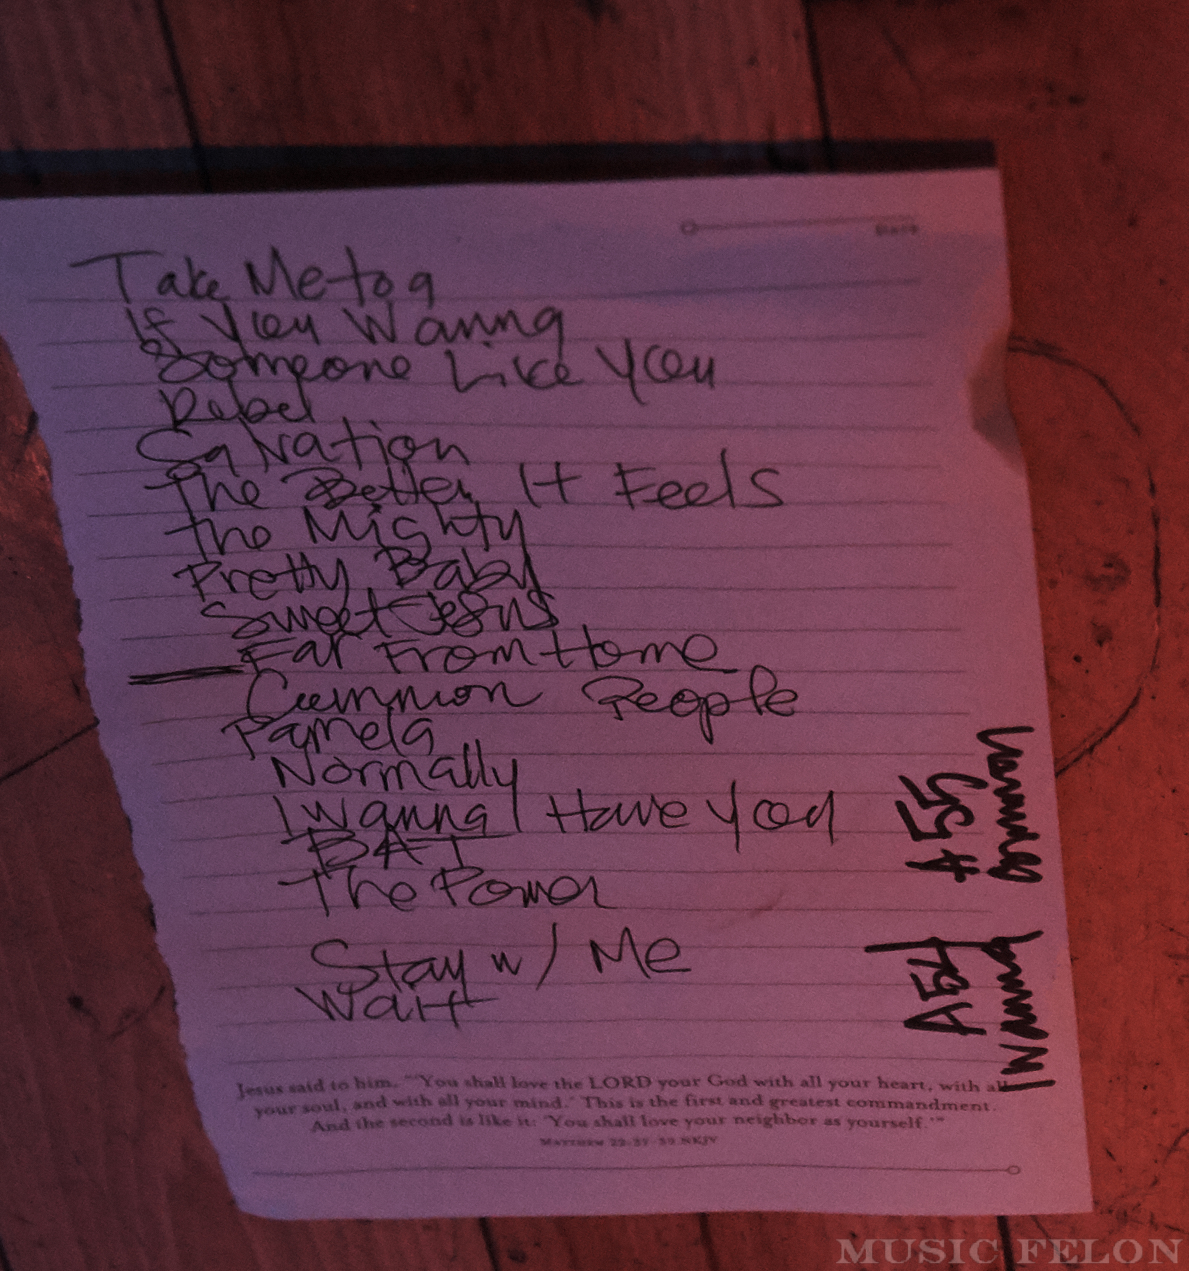 Date
Take Me to a
If You Wanna
Someone Like You
Rebel
Salvation
The Better It Feels
The Mighty
Pretty Baby
Sweet Jesus
Far From Home
Common People
Pamela
Normally
I Wanna Have You
BAT
The Power
Stay w/ Me
Wait
A 55
A54
I Wanna
Jesus said to him, "'You shall love the LORD your God with all your heart, with all
your soul, and with all your mind.' This is the first and greatest commandment.
And the second is like it: 'You shall love your neighbor as yourself.'"
MATTHEW 22:37-39 NKJV
MUSIC FELON